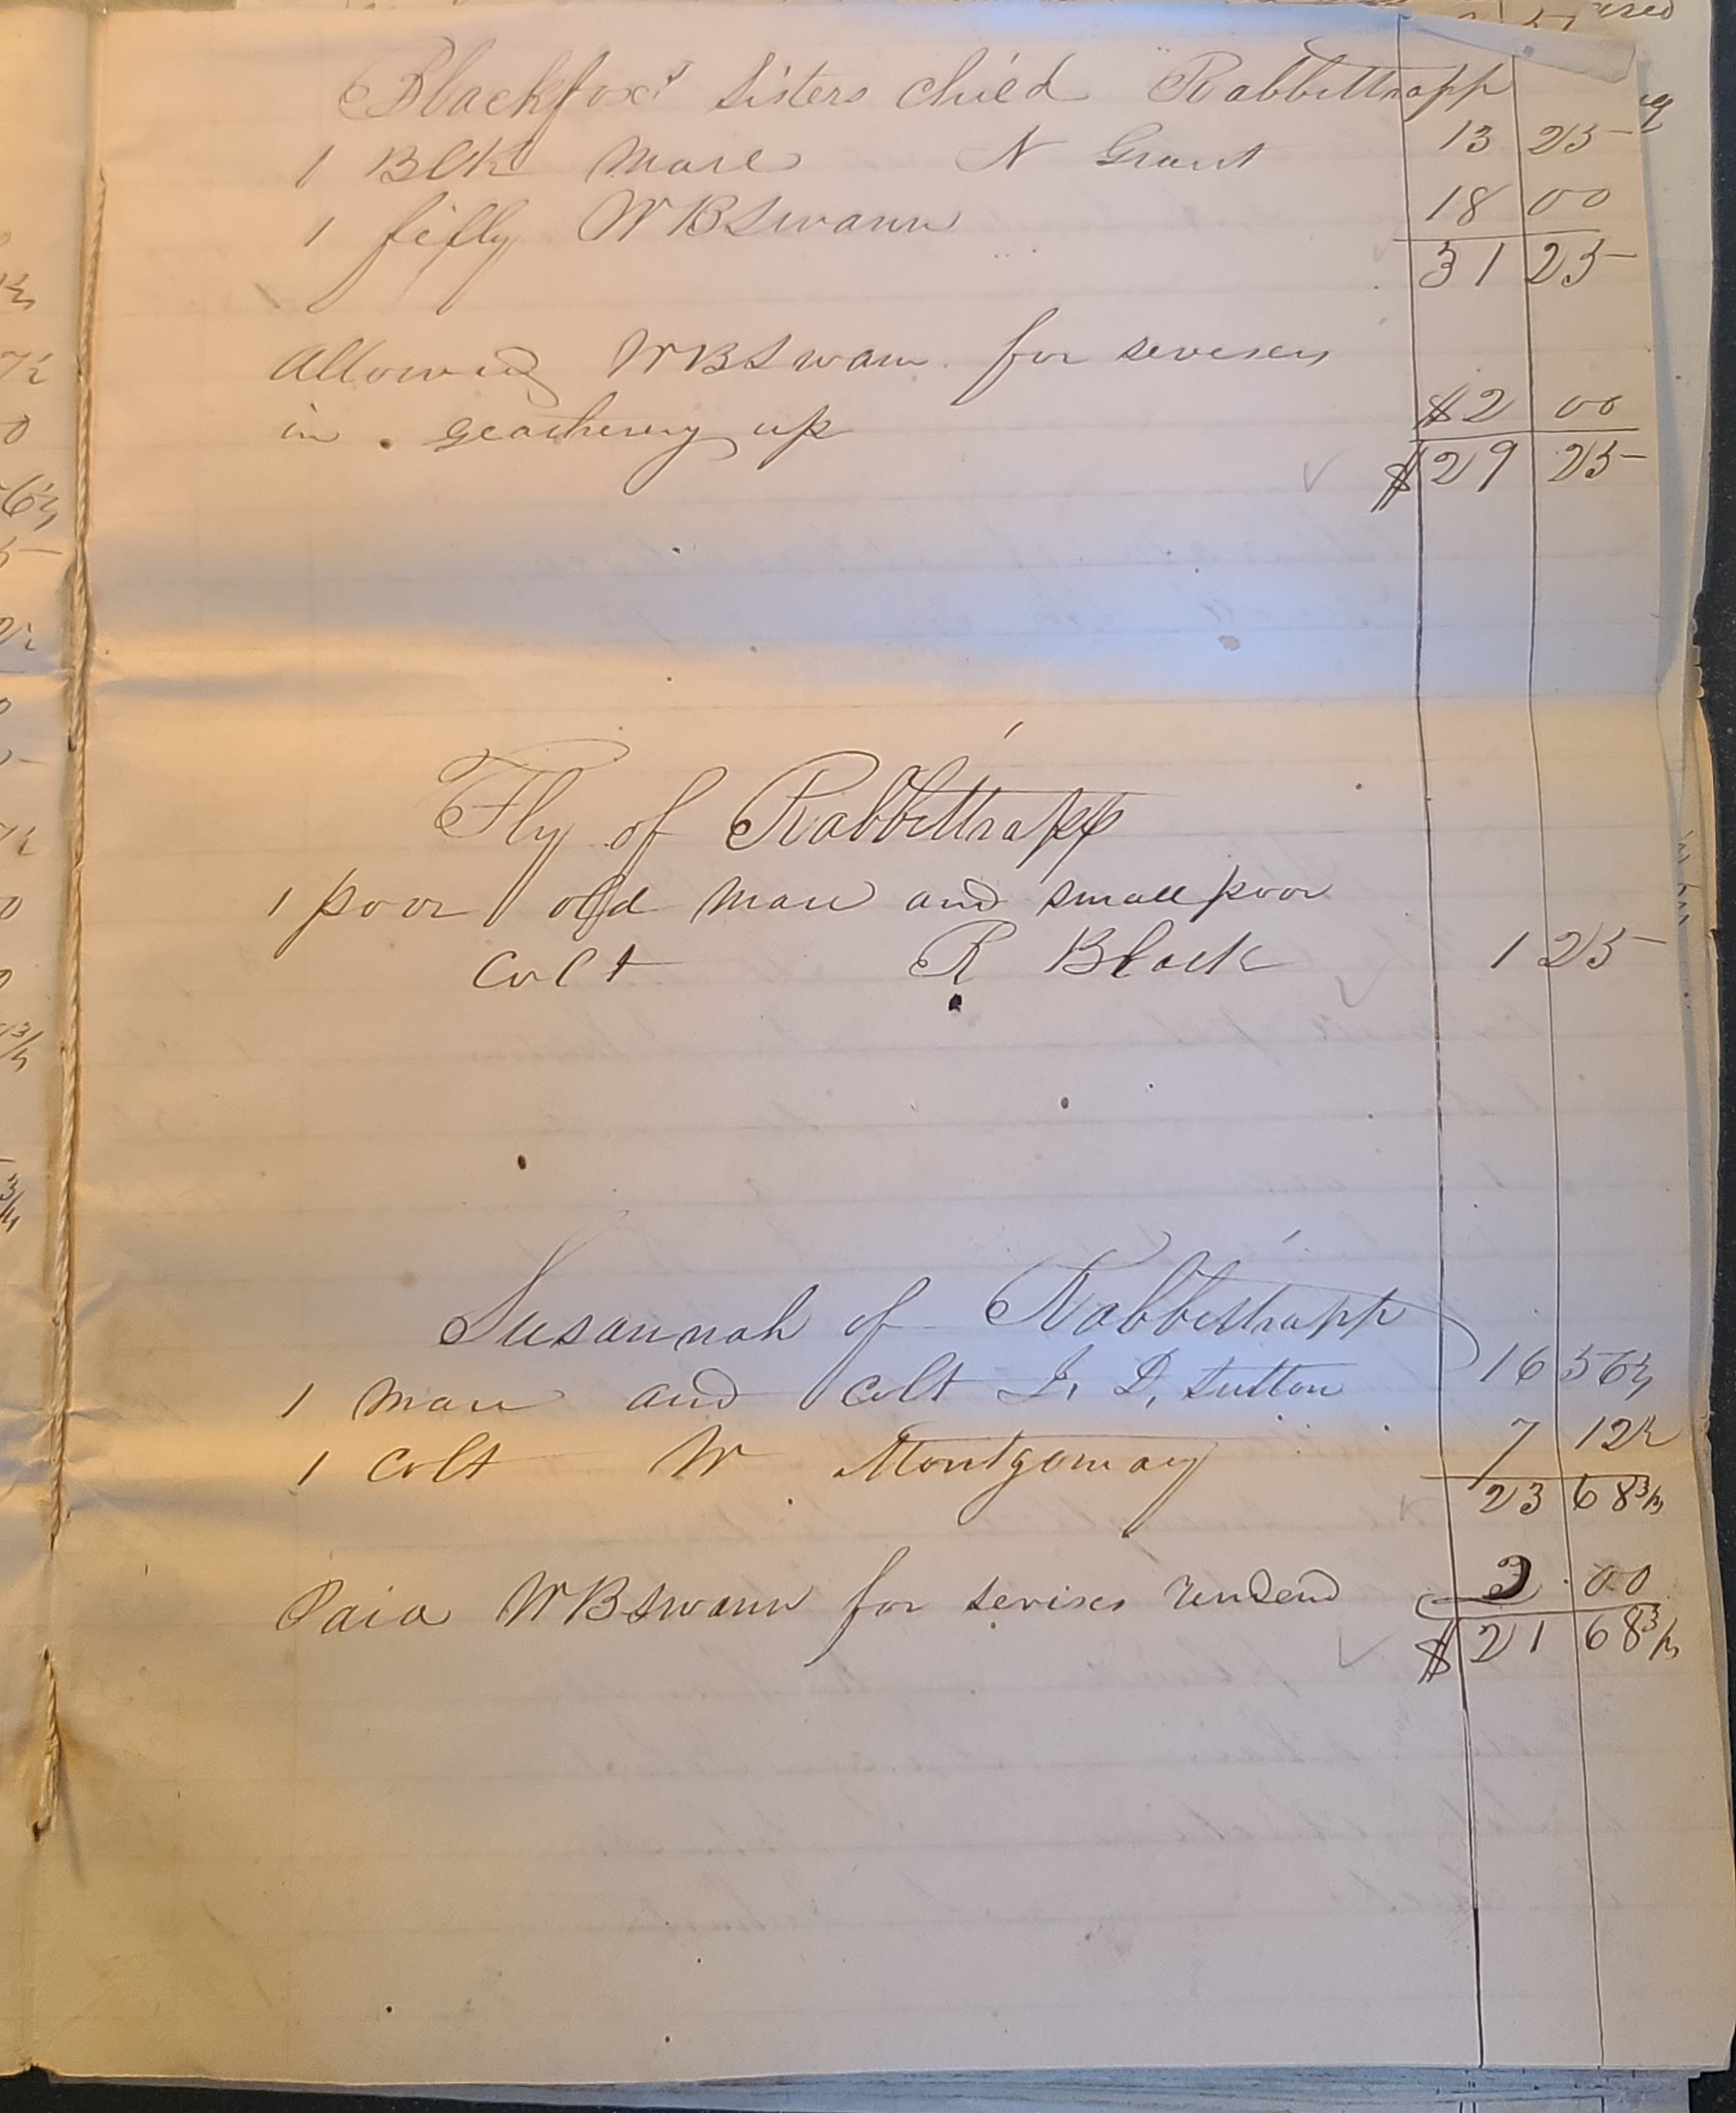 Blackfox's Sisters child Rabbettrapp
1 Blk mare N Grant 13 25
1 filly W B Swann 18 00
31 25
Allowed W B Swann for seveses
in geathering up $2 00
$29 25
Fly of Rabbettrapp
1 poor old mare and small poor
Colt R Black 1 25
Susannah of Rabbettrapp
1 mare and Colt J. D. Sutton 16 56¼
1 Colt W Montgomay 7 12½
23 68¾
Paid W B Swann for sevises rended 2 00
$21 68¾